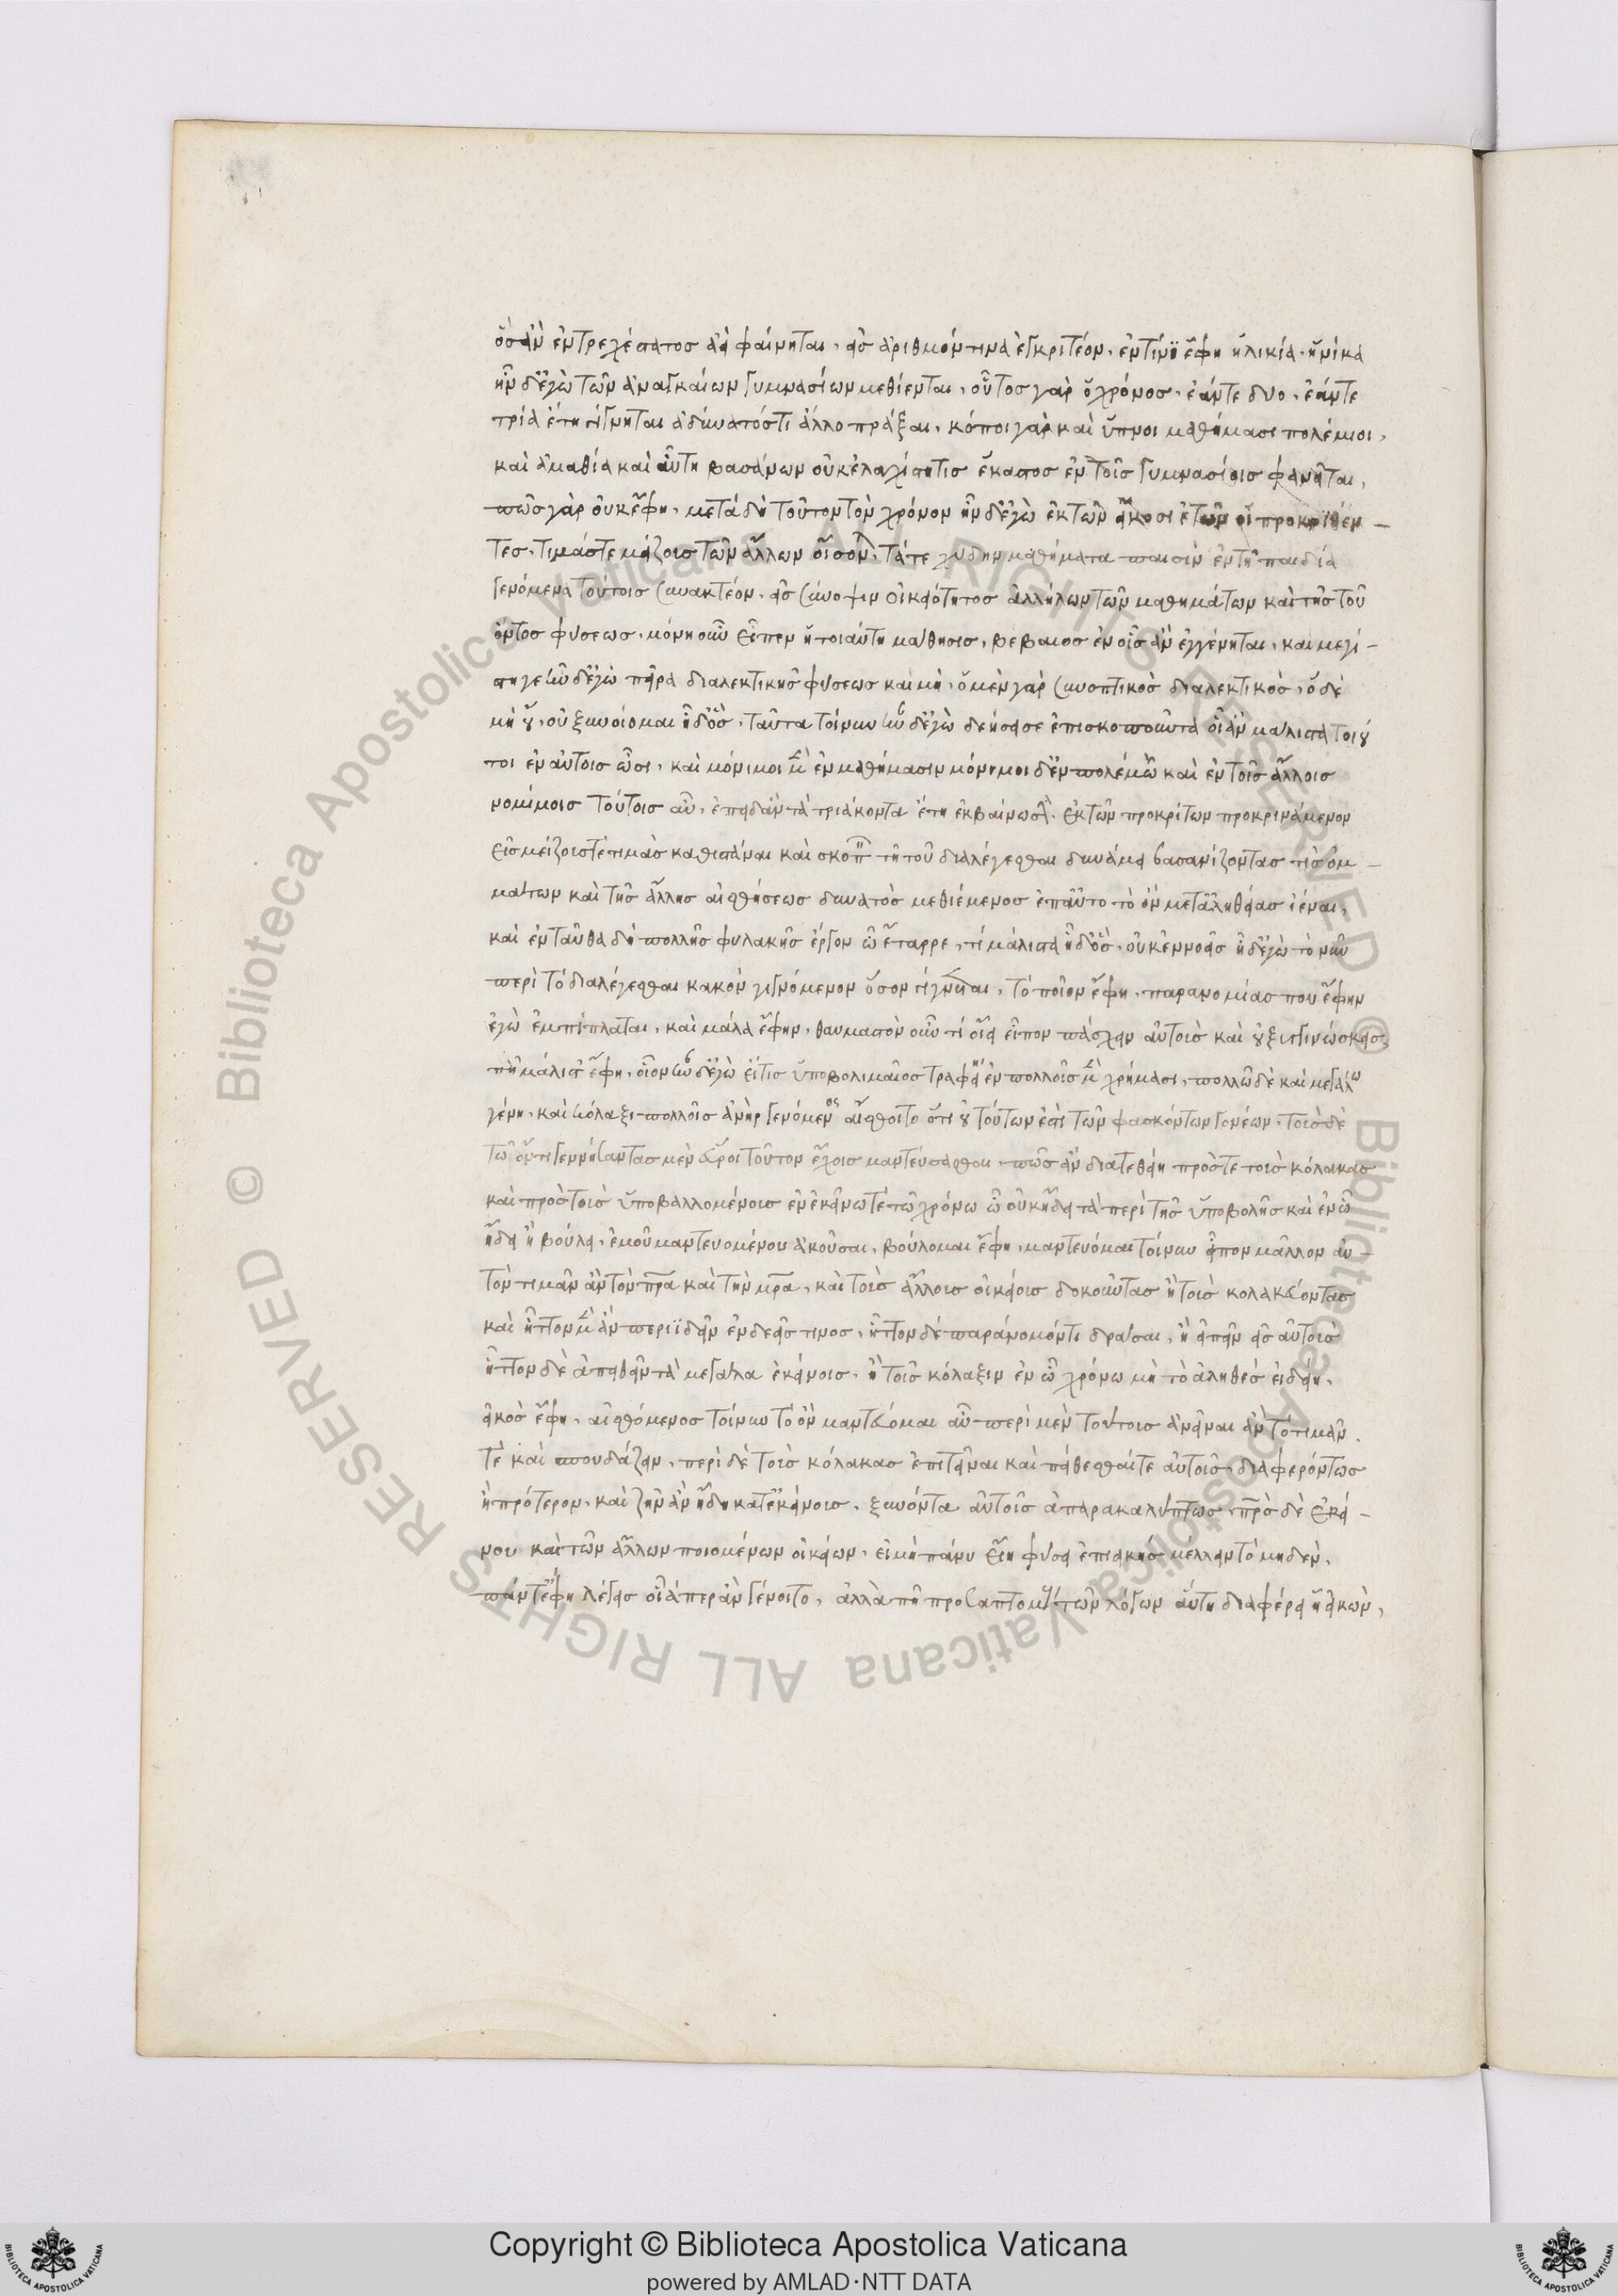 ὃσἂν ἐντρεχέστατος ἀεὶ φαίνηται, εἰς ἀριθμόν τινα ἐγκριτέον. ἐν τίνϊ ἔφη ἡλικία. ἡνίκα
ἦν δἐγὼ τῶν ἀναγκαίων γυμνασίων μεθίενται, οὗτος γὰρ ὁ χρόνος, ἐάντε δυο, ἐάντε
τρία ἔτη γίγνηται ἀδύνατός τι ἄλλο πρᾶξαι, κόποι γὰρ καὶ ὕπνοι μαθήμασι πολέμιοι,
καὶ ἀμαθία καὶ αὕτη βασάνων οὐκ ἐλαχίστη τις ἕκαστος ἐν τοῖς γυμνασίοις φανεῖται,
πῶς γὰρ οὐκ ἔφη, μετὰ δὴ τοῦτον τὸν χρόνον ἦν δἐγὼ ἐκ τῶν εἴκοσι ἐτῶν οἱ προκριθέν –
τες, τιμάς τε μείζους τῶν ἄλλων οἴσονται, τά τε χύδην μαθήματα παισὶν ἐν τῇ παιδία
γενόμενα τούτοις συνακτέον, εἰς σύνοψιν οἰκειότητος ἀλλήλων τῶν μαθημάτων καὶ τῆς τοῦ
ὄντος φύσεως, μόνη οὖν εἶπεν ἡ τοιαύτη μάθησις, βεβαιος ἐν οἷς ἂν ἐγγένηται, και μεγί –
στη γε ἦν δἐγὼ πεῖρα διαλεκτικῆς φύσεως καὶ μὴ, ὁ μὲν γὰρ συνοπτικὸς διαλεκτικός, ὁ δὲ
μὴ οὒ, οὐ ξυνοίομαι ἦ δὃς, ταῦτα τοίνυν ἦν δἐγὼ δεήσει σε ἐπισκοποῦντα οἳ ἂν μάλιστα τοιοῦ
τοι ἐν αὐτοις ὦσι, καὶ μόνιμοι μὲν ἐν μαθήμασιν μόνιμοι δἐν πολέμῳ καὶ ἐν τοῖς ἄλλοις
νομίμοις τούτοις αὖ, ἐπειδὰν τὰ τριάκοντα ἔτη ἐκβαίνωσιν. ἐκ τῶν προκρίτων προκρινάμενον
εἰς μείζους τε τιμὰς καθιστάναι καὶ σκοπεῖν τῇ τοῦ διαλέγεσθαι δυνάμει βασανίζοντας τὶς ὀμ –
μάτων καὶ τῆς ἄλλης αἰσθήσεως δυνατὸς μεθιέμενος ἐπαὐτο τὸ ὂν μετἀληθείας ἰέναι,
καὶ ἐνταῦθα δὴ πολλῆς φυλακῆς ἔργον ὦ ἕταιρε, τί μάλιστα ἦ δὃς, οὐκ ἐννοεῖς ἦ δἐγὼ τὸ νῦν
περὶ τὸ διαλέγεσθαι κακὸν γιγνόμενον ὅσον γίγνεται, τὸ ποῖον ἔφη, παρανομίας που ἔφην
ἐγὼ ἐμπίπλαται, καὶ μάλα ἔφην, θαυμαστὸν οὖν τί οἴει εἶπον πάσχειν αὐτοὺς καὶ οὐ ξυγγινώσκεις,
πῇ μάλιστ ἔφη, οἷον ἦν δἐγὼ εἴ τις ὑποβολιμαῖος τραφείη ἐν πολλοῖς μὲν χρήμασι, πολλῶ δὲ καὶ μεγάλω
γένη, καὶ κόλαξι πολλοῖς ἀνὴρ γενόμενος αἴσθοιτο ὅτι οὐ τούτων ἐστὶ τῶν φασκόντων γονέων, τοὺς δὲ
τῶ ὄντι γεννήσαντας μὲν εὕροι τοῦτον ἔχοις μαντεύσασθαι, πῶς ἂν διατεθείη πρός τε τοὺς κόλακας
καὶ πρὸς τοὺς ὑποβαλλομένους ἐν ἐκείνω τε τῶ χρόνω ὧ οὐκ ἤδει τὰ περὶ τῆς ὑποβολῆς καὶ ἐν ὧ
ἤδει ἢ βούλει, ἐμοῦ μαντευομένου ἀκοῦσαι, βούλομαι ἔφη, μαντεύομαι τοίνυν εἶπον μᾶλλον αὐ –
τὸν τιμᾶν ἂν τὸν πρα καὶ τὴν μρα, καὶ τοὺς ἄλλους οἰκείους δοκοῦντας ἢ τοὺς κολακεύοντας
καὶ ἧττον μὲν ἂν περιϊδεῖν ἐνδεεῖς τινος, ἧττον δὲ παράνομόν τι δρᾶσαι, ἢ εἰπεῖν εἰς αὐτοὺς
ἧττον δὲ ἀπειθεῖν τὰ μεγάλα ἐκείνοις, ἢ τοῖς κόλαξιν ἐν ὧ χρόνω μὴ τὸ ἀληθὲς εἰδείη,
εἰκὸς ἔφη, αἰσθόμενος τοίνυν τὸ ὂν μαντεύομαι αὖ περὶ μὲν τούτους ἀνεῖναι ἂν τὸ τιμᾶν
τὲ καὶ σπουδάζειν, περὶ δὲ τοὺς κόλακας ἐπιτεῖναι καὶ πείθεσθαί τε αὐτοῖς διαφερόντως
ἢ πρότερον, καὶ ζῆν ἂν ἤδη κατἐκείνους, ξυνόντα αὐτοῖς ἀπαρακαλύπτως, πρὸς δὲ ἐκεί –
νου καὶ τῶν ἄλλων ποιουμένων οἰκείων, εἰ μὴ πάνυ εἴη φύσει ἐπιεικὴς μέλλειν τὸ μηδέν,
πάντ ἔφη λέγεις οἷάπερ ἂν γένοιτο, ἀλλὰ πῇ πρὸς ἁπτομένους τῶν λόγων αὕτη διαφέρει ἡ εἰκὼν,
Copyright © Biblioteca Apostolica Vaticana
powered by AMLAD·NTT DATA